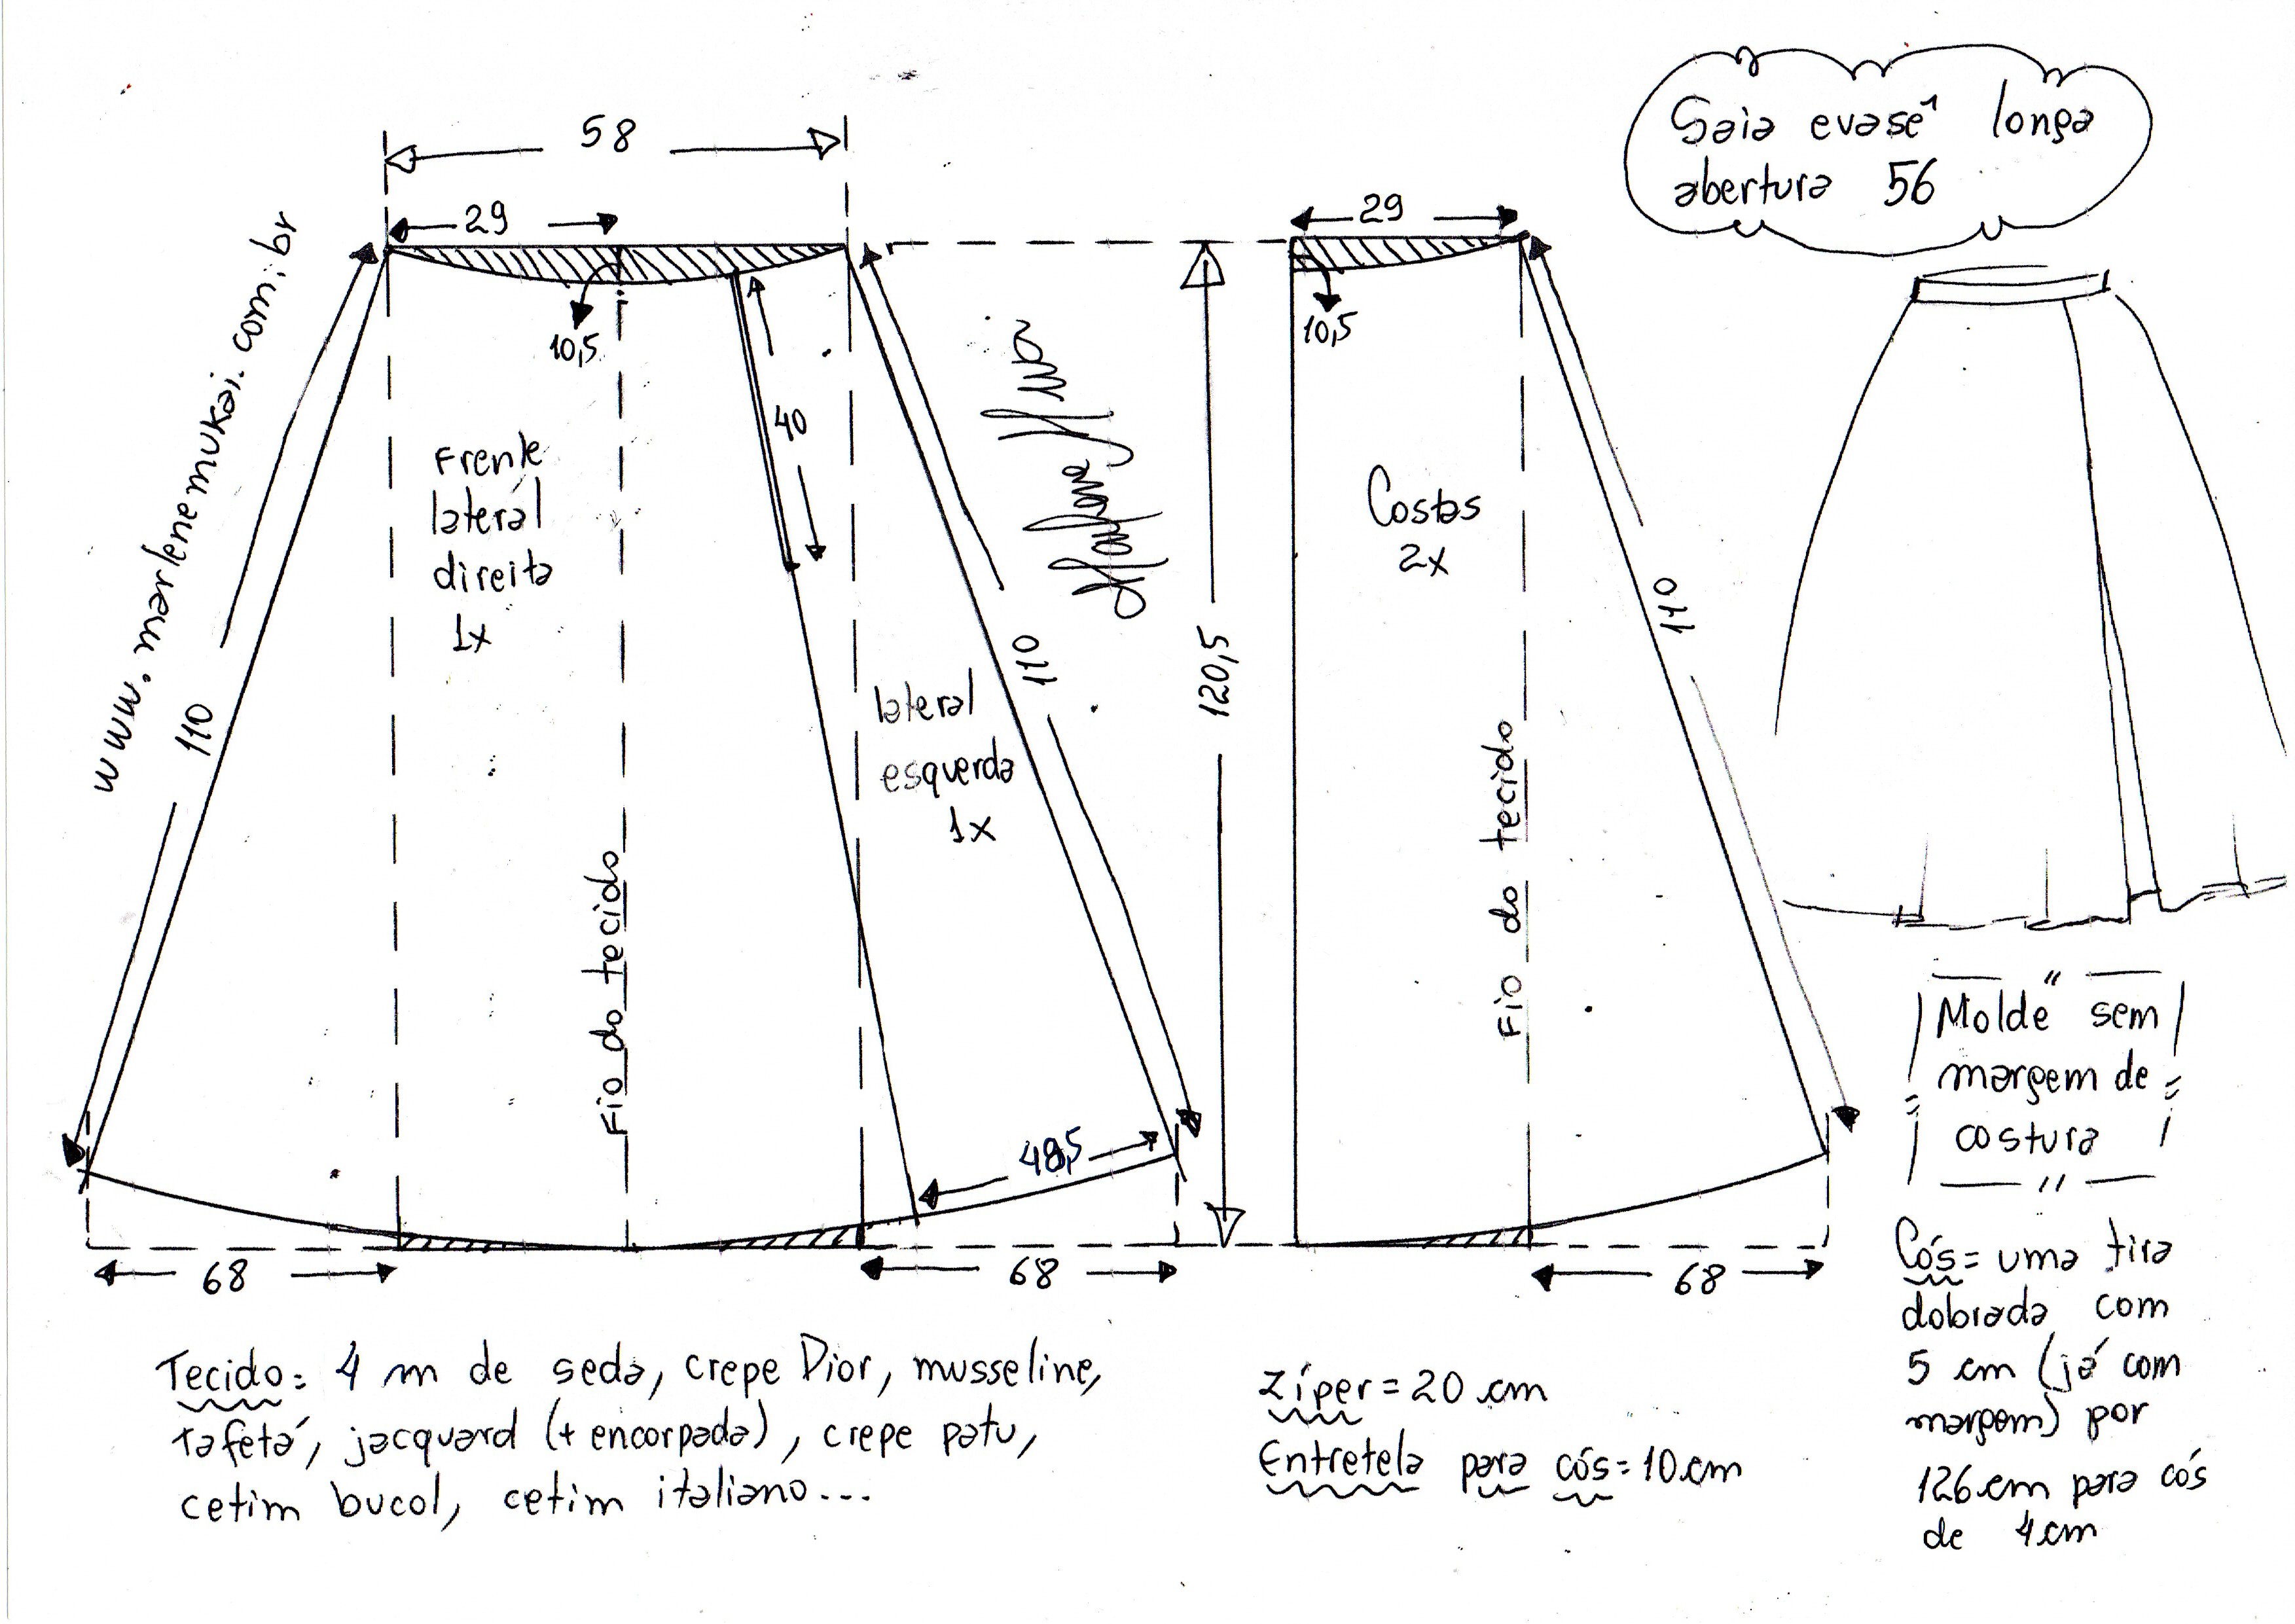 Saia evasê longa
abertura 56
58
29
10,5
www.marlenemukai.com.br
110
Frente
lateral
direita
1x
40
Fio do tecido
lateral
esquerda
1x
110
68
68
120,5
29
10,5
Costas
2x
Fio do tecido
110
68
"Molde" sem
margem de
costura
Cós = uma tira
dobrada com
5 cm (já com
margem) por
126 cm para cós
de 4 cm
Tecido: 4 m de seda, crepe Dior, musseline,
tafetá, jacquard (+ encorpada), crepe patu,
cetim bucol, cetim italiano...
Zíper = 20 cm
Entretela para cós = 10 cm